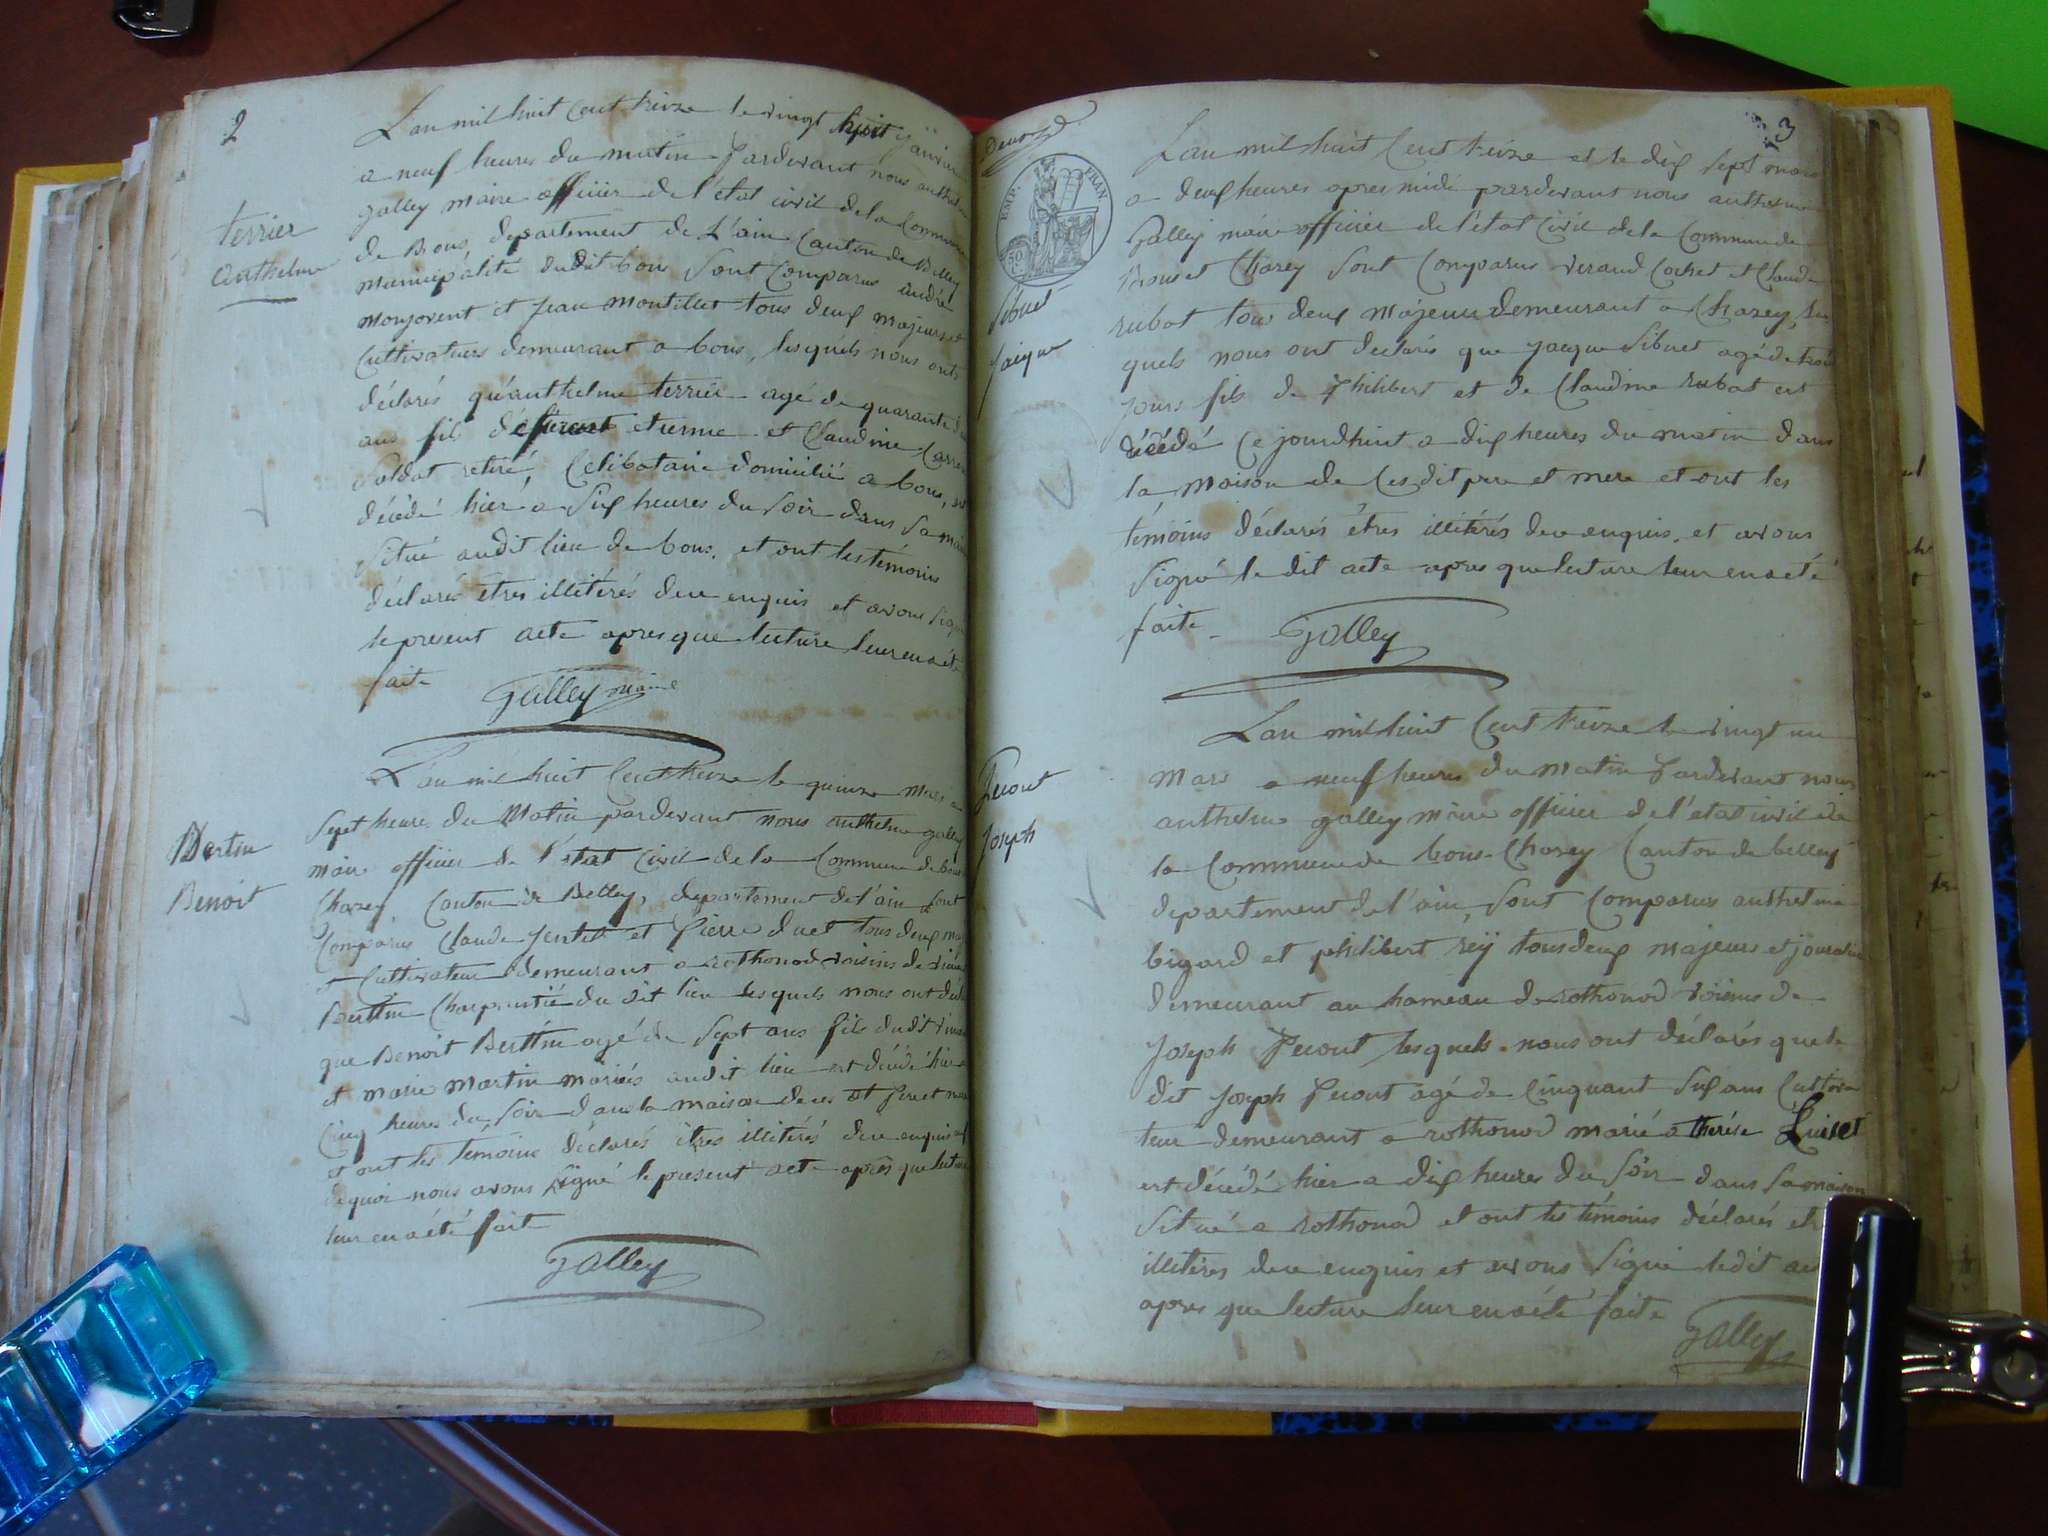 2
L'an mil huit cent treize le vingt huit janvier
a neuf heures du matin pardevant nous anthelme
galley maire officier de l'état civil de la Commune
de Bons, departement de L'ain Canton de Belley
municipalité dudit bons sont Comparus andré
monjovent et jean montillet tous deux majeurs et
Cultivateurs demeurant a bons, lesquels nous onts
déclarés qu'anthelme terrier agé de quarante
ans fils etienne et Claudine
soldat retiré, Celibataire domicilié a bons, est
décédé hier a six heures du soir dans sa maison
situé audit lieu de bons, et ont les témoins
déclarés êtres illitérés de ce enquis et avons signé
le present acte apres que lecture leur en a été
faite
Galley maire
terrier
anthelme
L'an mil huit Cent treize le quinze mars a
sept heure du Matin pardevant nous anthelme galley
maire officier de l'état Civil de la Commune de bons
Chazey Canton de Belley, departement de l'ain sont
Comparus Claude et Pierre duet tous deux
et Cultivateur demeurant a rothonod voisins de
Berttin Charpentié du dit lieu lesquels nous ont
que Benoit Berttin agé de sept ans fils dudit
et marie martin mariés audit lieu est décédé hier a
Cinq heures du soir dans la maison de ces dt pere et mere
et ont les temoins déclarés êtres illitérés de ce enquis
de quoi nous avons signé le present acte après que lecture
leur en a été faite
Galley
Bertin
Benoit
3
EMP. FRAN
50
L'an mil huit Cent treize et le dix sept mars
a deux heures apres midi pardevant nous anthelme
Galley maire officier de l'état Civil de la Commune de
Bons et Chazey sont Comparus Cochet et Claude
rubat tous deux majeurs demeurant a Chazey, les
quels nous ont declarés que jacque Sibuet agé de trois
jours fils de Philibert et de Claudine rubat est
décédé Ce jourdhuit a dix heures du matin dans
la maison de Ces dit pere et mere et ont les
témoins déclarés êtres illitérés de ce enquis, et avons
signé le dit acte apres que lecture leur en a été
faite
Galley
Sibuet
jaique
L'an mil huit Cent treize le vingt un
Mars a neuf heures du Matin Pardevant nous
anthelme galley maire officier de l'etat civil de
la Commune de bons-Chazey Canton de belley
departement de l'ain, sont Comparus anthelme
bigard et philibert rey tous deux majeurs et
demeurant au hameau de rothonod voisins de
Joseph Pecout lesquels nous ont déclarés que le
dit Joseph Pecout agé de Cinquant six ans Cultiva
teur demeurant a rothonod marié a thérése Luiset
est décédé hier a dix heures du Soir dans sa maison
situé a rothonod et ont les témoins déclarés
illitérés de ce enquis et avons signé ledit
apres que lecture leur en a été faite
Galley
Pecout
Joseph